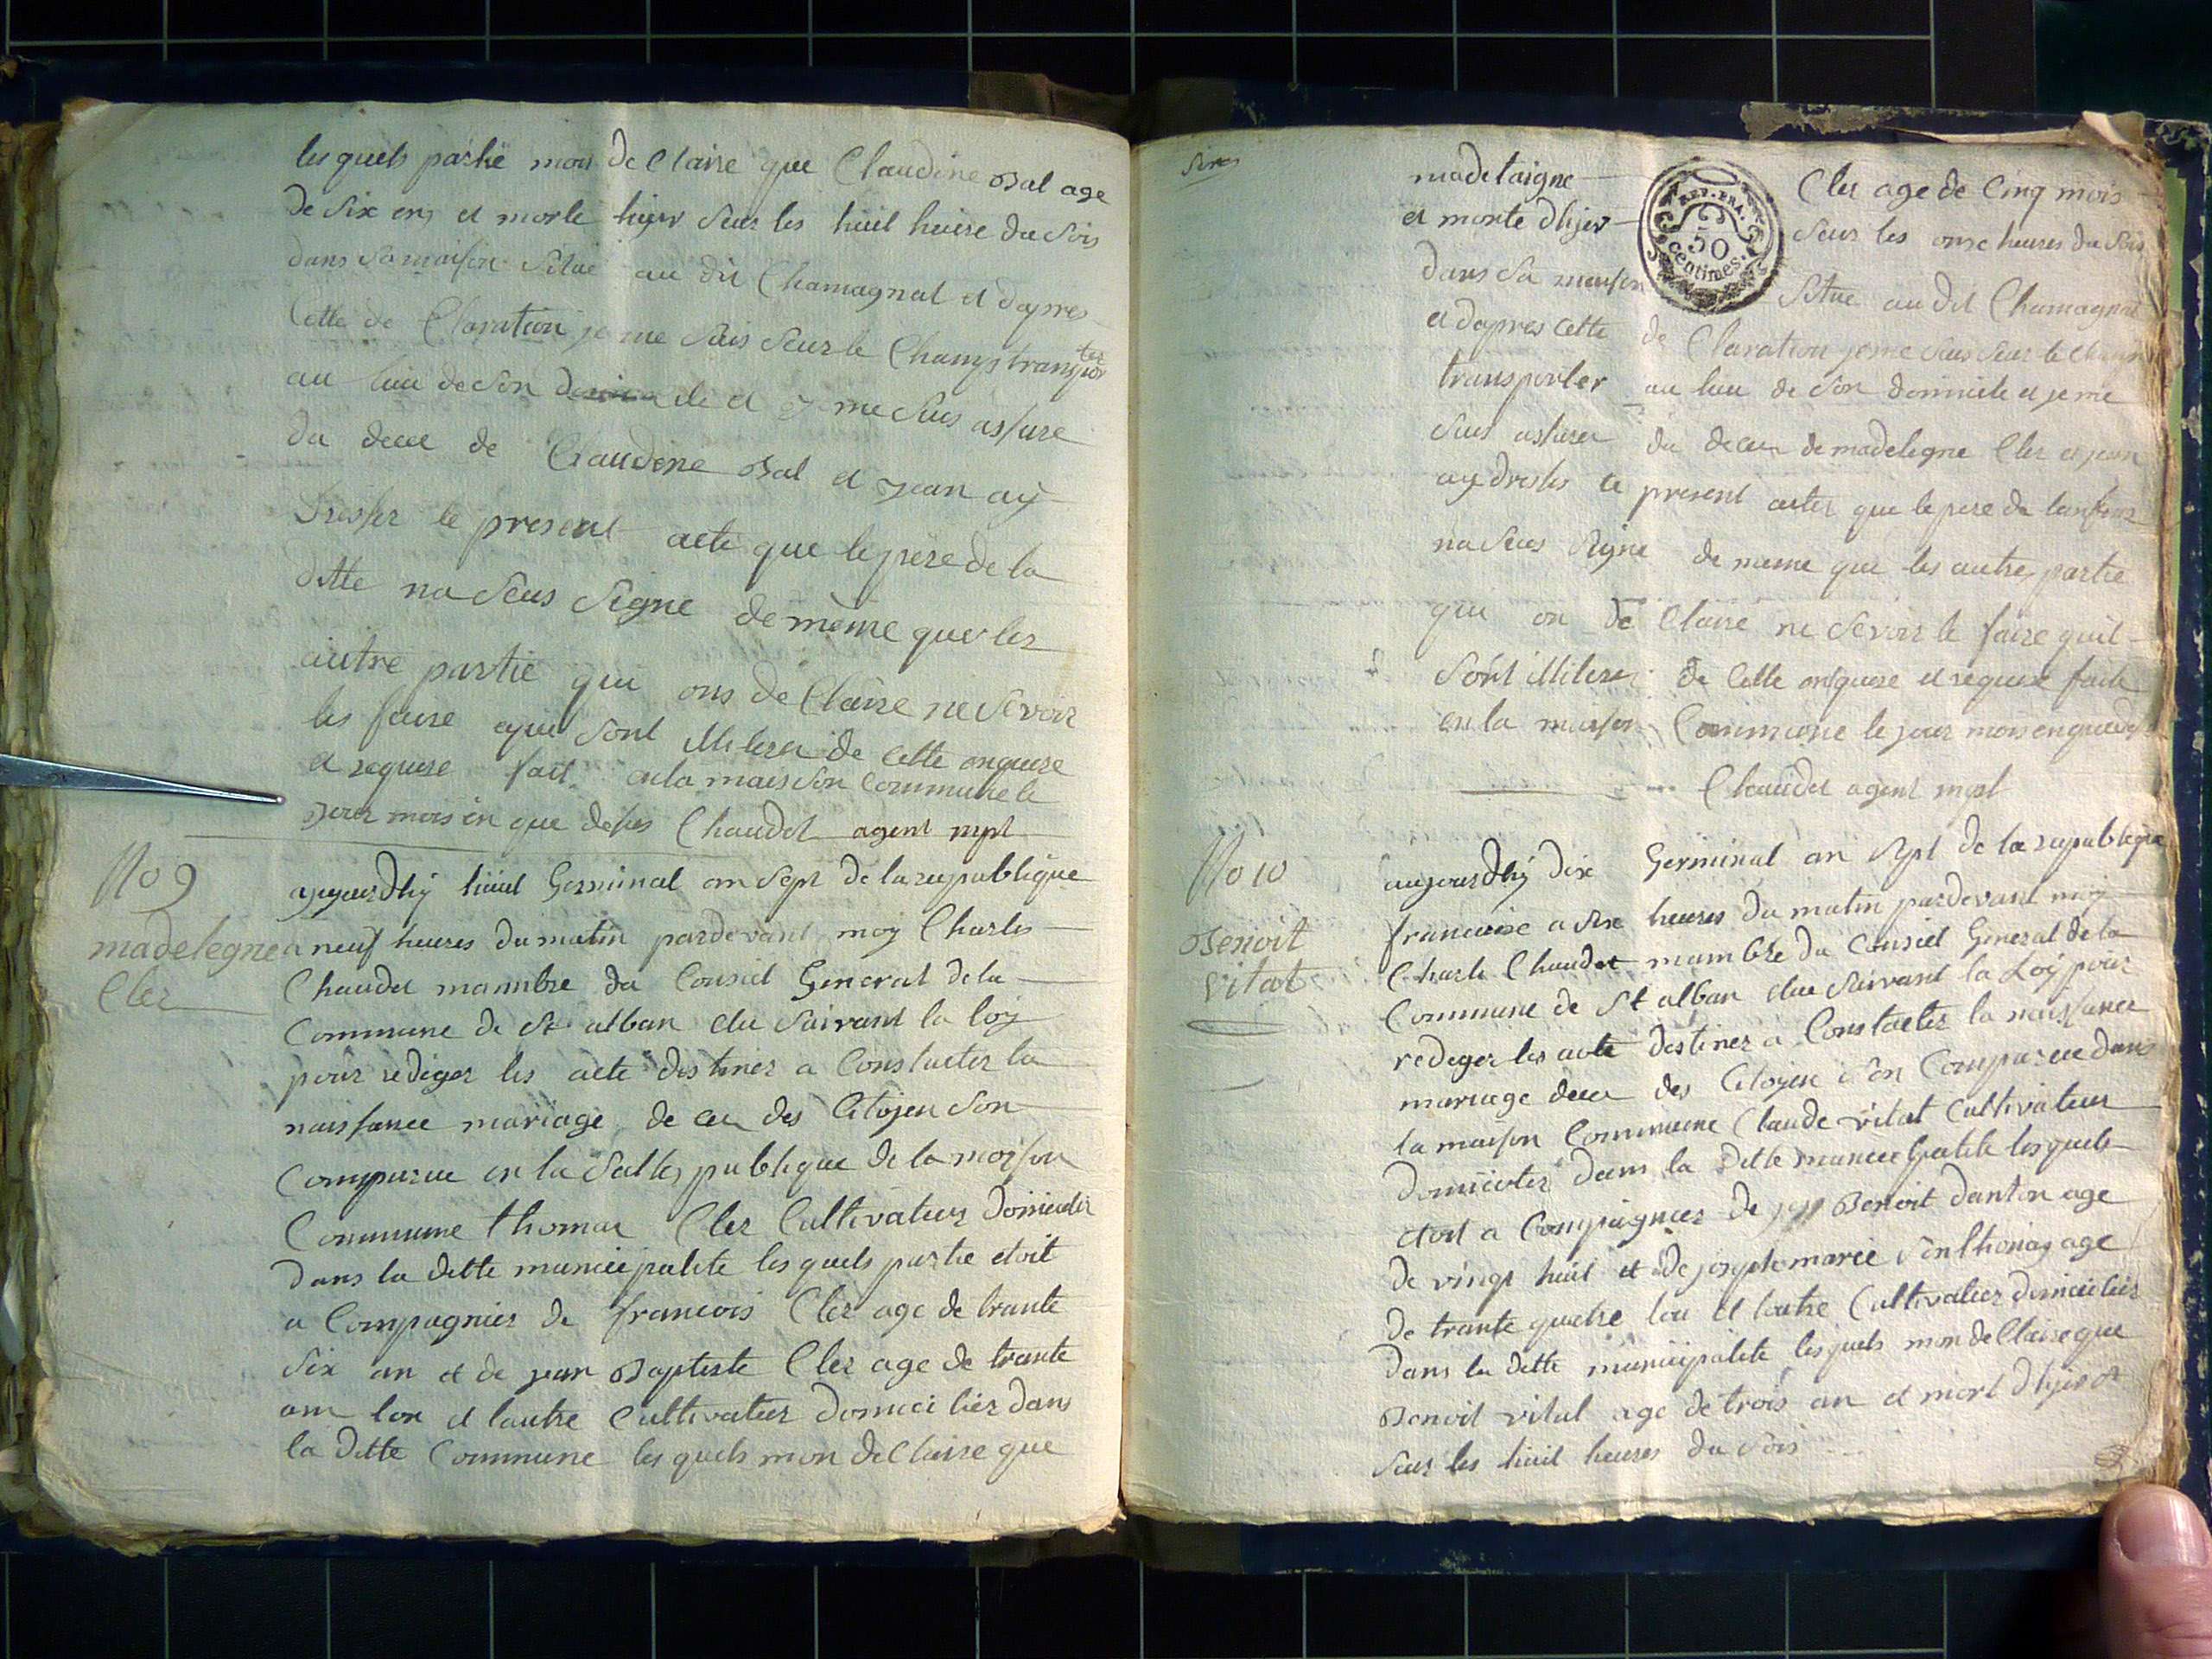 les quels partië mon de Claire que Claudine Bal age
de Six ens et morte hyer Seur les huil heure du Soir
dans Sa maison Situé au dit Chamagnat et dapres
Cette de Claration je me Suis Seur le Champs transporter
au lieu de Son domicile et je me Suis assure
du dece de Claudine Bal et jean ay
dresser le present acte que le pere de la
ditte na Seus Signe de même que les
autre partie qui ons de Claire ne Sevoir
les faire aque Sont Miterer de cette enquere
et requere fait en la maison Commune le
jour mois en que desus Chaudet agent mpl
No 9
madelegne
Cler
aujourdhÿ huit Germinal an Sept de la republique
a neuf heures du matin pardevant moy Charles
Chaudet mannbre du Conseil General de la
Commune de St alban elu Suivant la loy
pour rediger les acte destiner a Constater la
naissance mariage de ces des Citoyen Son
Comparue en la Salle publique de la maison
Commune thomar Cler Cultivateur Domicilier
dans la ditte municipalite les quels partie etoit
a Compagnier de francois Cler age de trante
Six an et de jean Baptiste Cler age de trante
am lon et lautre Cultivateur domici lier dans
la ditte Commune les quels mon de Claire que
madelaigne Cler age de Cinq mois
et morte dhyer Seur les onse heures du Soir
dans Sa maison Situe au dit Chamagnat
et dapres cette de Claration je me Suis Seur le Champ
transporter au lieu de Son domicile et je me
Suis assurer du deces de madelegne Cler et jean
ay dresser le present acter que le pere de lenfans
na Seus Signe de meme que les autre partie
qui on de Claire ne Sevoir le faire quil
Sont Miterer de Cette enquere et requere faite
en la maison Commune le jour mois en que desus
Chaudet agent mpl
REP. FRA.
50
Centimes.
No 10
Benoit
vitat
aujourdhÿ dix Germinal an Sept de la republique
francaise a Six heures du matin pardevant moy
Charle Chaudet mambre du Conseil General de la
Commune de St alban elu Suivant la Loy pour
rediger les acte destiner a Constater la naissance
mariage dece des Citoyen Son Comparue dans
la maison Commune Claude vitat Cultivateur
domicilier dans la ditte municipalite les quels
etoit a Compagnier de Benoit danton age
de vingt huit et de joseph marie Santhonas age
de trante quatre lon et lautre Cultivateur domicilier
dans la ditte municipalité les quels mon de Claire que
Benoit vital age de trois an et mort dhyer
Seur les huil heures du Soir